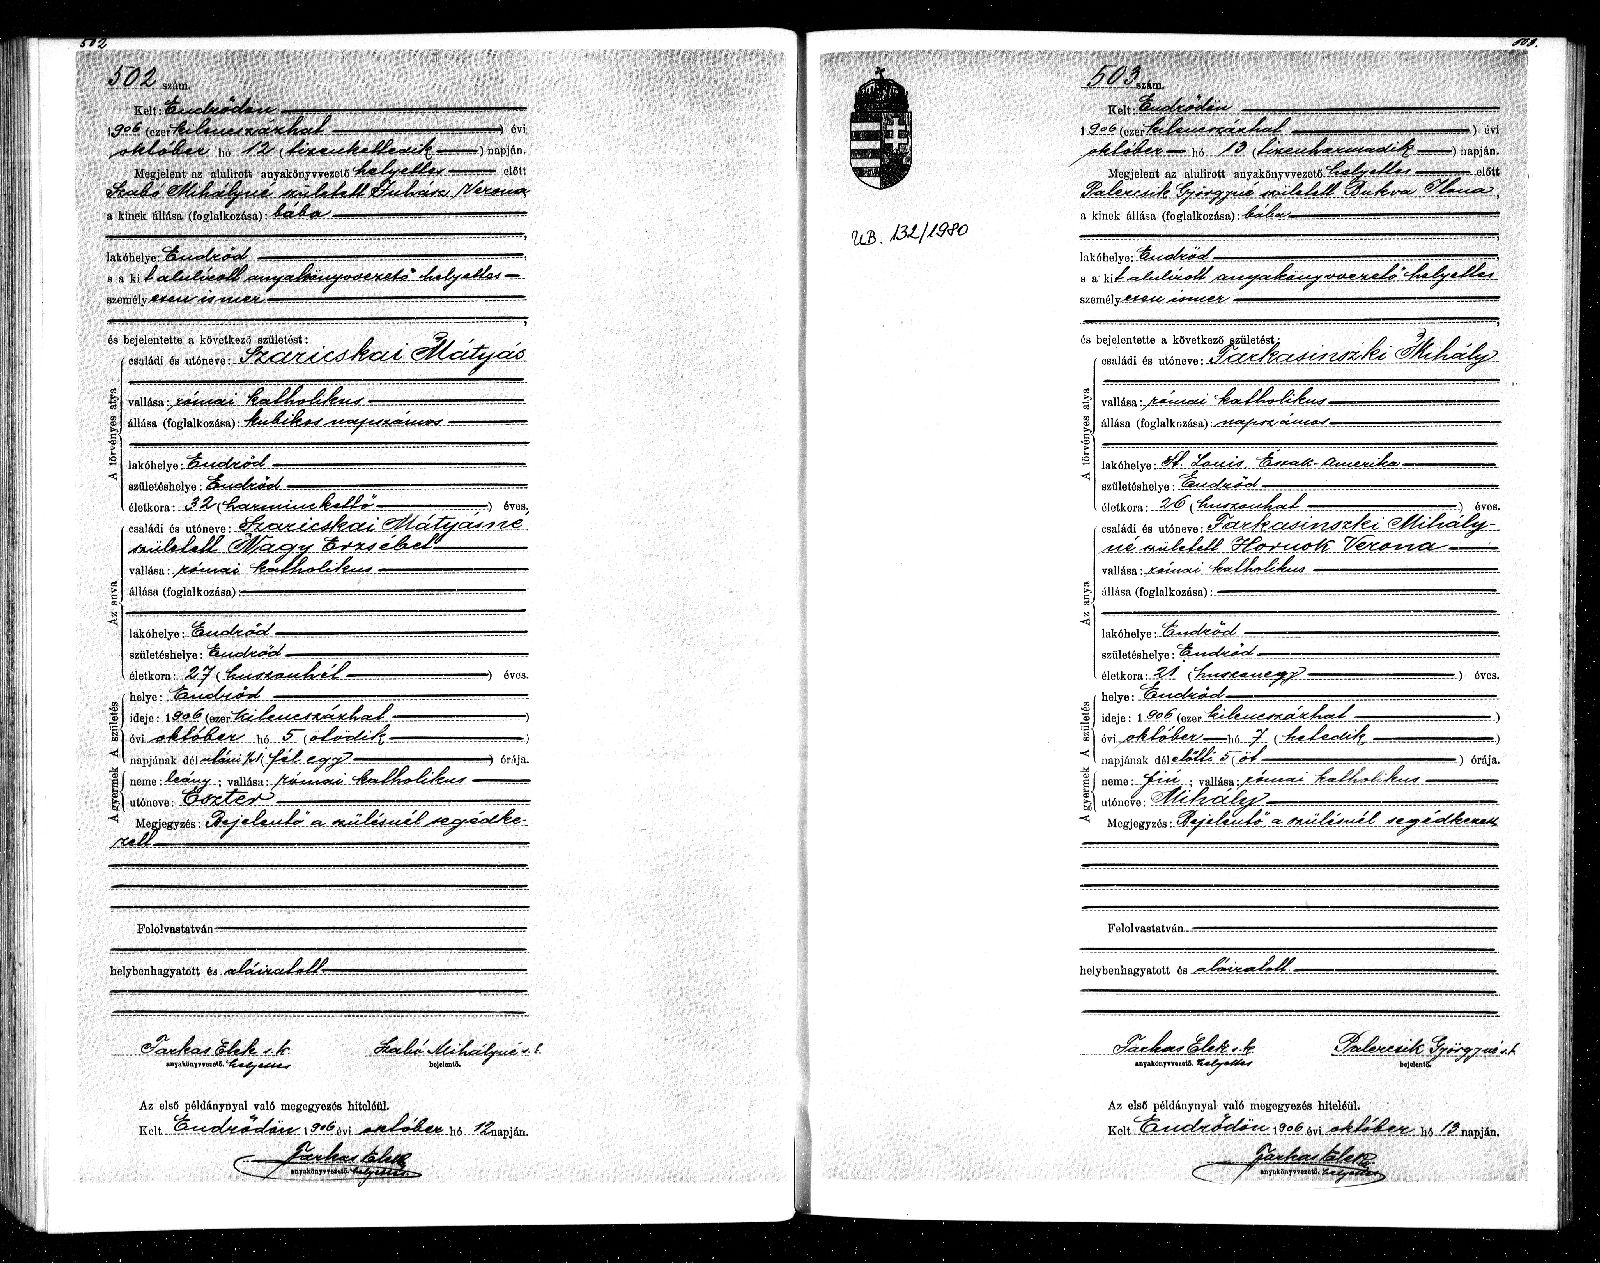 502
502 szám.
Kelt: Endrődön
1906 (ezer kilenczszázhat ) évi
október hó 12 (tizenkettedik ) napján.
Megjelent az alulirott anyakönyvvezető helyettes előtt
Szabó Mihályné született Juhász Verona
a kinek állása (foglalkozása): bába
lakóhelye: Endrőd
s a kit alulírott anyakönyvvezető helyettes
személyesen ismer
és bejelentette a következő születést:
A törvényes atya
családi és utóneve: Szaricskai Mátyás
vallása: római katholikus
állása (foglalkozása): kubikos napszámos
lakóhelye: Endrőd
születéshelye: Endrőd
életkora: 32 (harminckettő ) éves,
Az anya
családi és utóneve: Szaricskai Mátyásné
született Nagy Erzsébet
vallása: római katholikus
állása (foglalkozása):
lakóhelye: Endrőd
születéshelye: Endrőd
életkora: 27 (huszonhét ) éves.
A születés
helye: Endrőd
ideje: 1906 (ezer kilenczszázhat )
évi október hó 5 (ötödik )
napjának dél utáni ½1 (fél egy ) órája.
A gyermek
neme: leány; vallása: római katholikus
utóneve: Eszter
Megjegyzés: Bejelentő a szülésnél segédke-
zett
Felolvastatván
helybenhagyatott és aláiratott
Farkas Elek s.k. Szabó Mihályné s.k.
anyakönyvvezető. helyettes bejelentő.
Az első példánynyal való megegyezés hiteléül.
Kelt Endrődön 1906 évi október hó 12 napján.
Farkas Elek
anyakönyvvezető. helyettes
UB. 132/1980
503.
503 szám.
Kelt: Endrődön
1906 (ezer kilenczszázhat ) évi
október hó 13 (tizenharmadik ) napján.
Megjelent az alulirott anyakönyvvezető helyettes előtt
Palercsik Györgyné született Bukva Ilona,
a kinek állása (foglalkozása): bába
lakóhelye: Endrőd
s a kit alulírott anyakönyvvezető helyettes
személyesen ismer
és bejelentette a következő születést:
A törvényes atya
családi és utóneve: Farkasinszki Mihály
vallása: római katholikus
állása (foglalkozása): napszámos
lakóhelye: St. Louis, Észak-Amerika
születéshelye: Endrőd
életkora: 26 (huszonhat ) éves.
Az anya
családi és utóneve: Farkasinszki Mihály-
né született Hornok Verona
vallása: római katholikus
állása (foglalkozása):
lakóhelye: Endrőd
születéshelye: Endrőd
életkora: 21 (huszonegy ) éves.
A születés
helye: Endrőd
ideje: 1906 (ezer kilenczszázhat )
évi október hó 7 (hetedik )
napjának dél előtti 5 (öt ) órája.
A gyermek
neme: fiú; vallása: római katholikus
utóneve: Mihály
Megjegyzés: Bejelentő a szülésnél segédkezett
Felolvastatván
helybenhagyatott és aláiratott
Farkas Elek s.k. Palercsik Györgyné s.k.
anyakönyvvezető. helyettes bejelentő.
Az első példánynyal való megegyezés hiteléül.
Kelt Endrődön 1906 évi október hó 13 napján.
Farkas Elek
anyakönyvvezető. helyettes